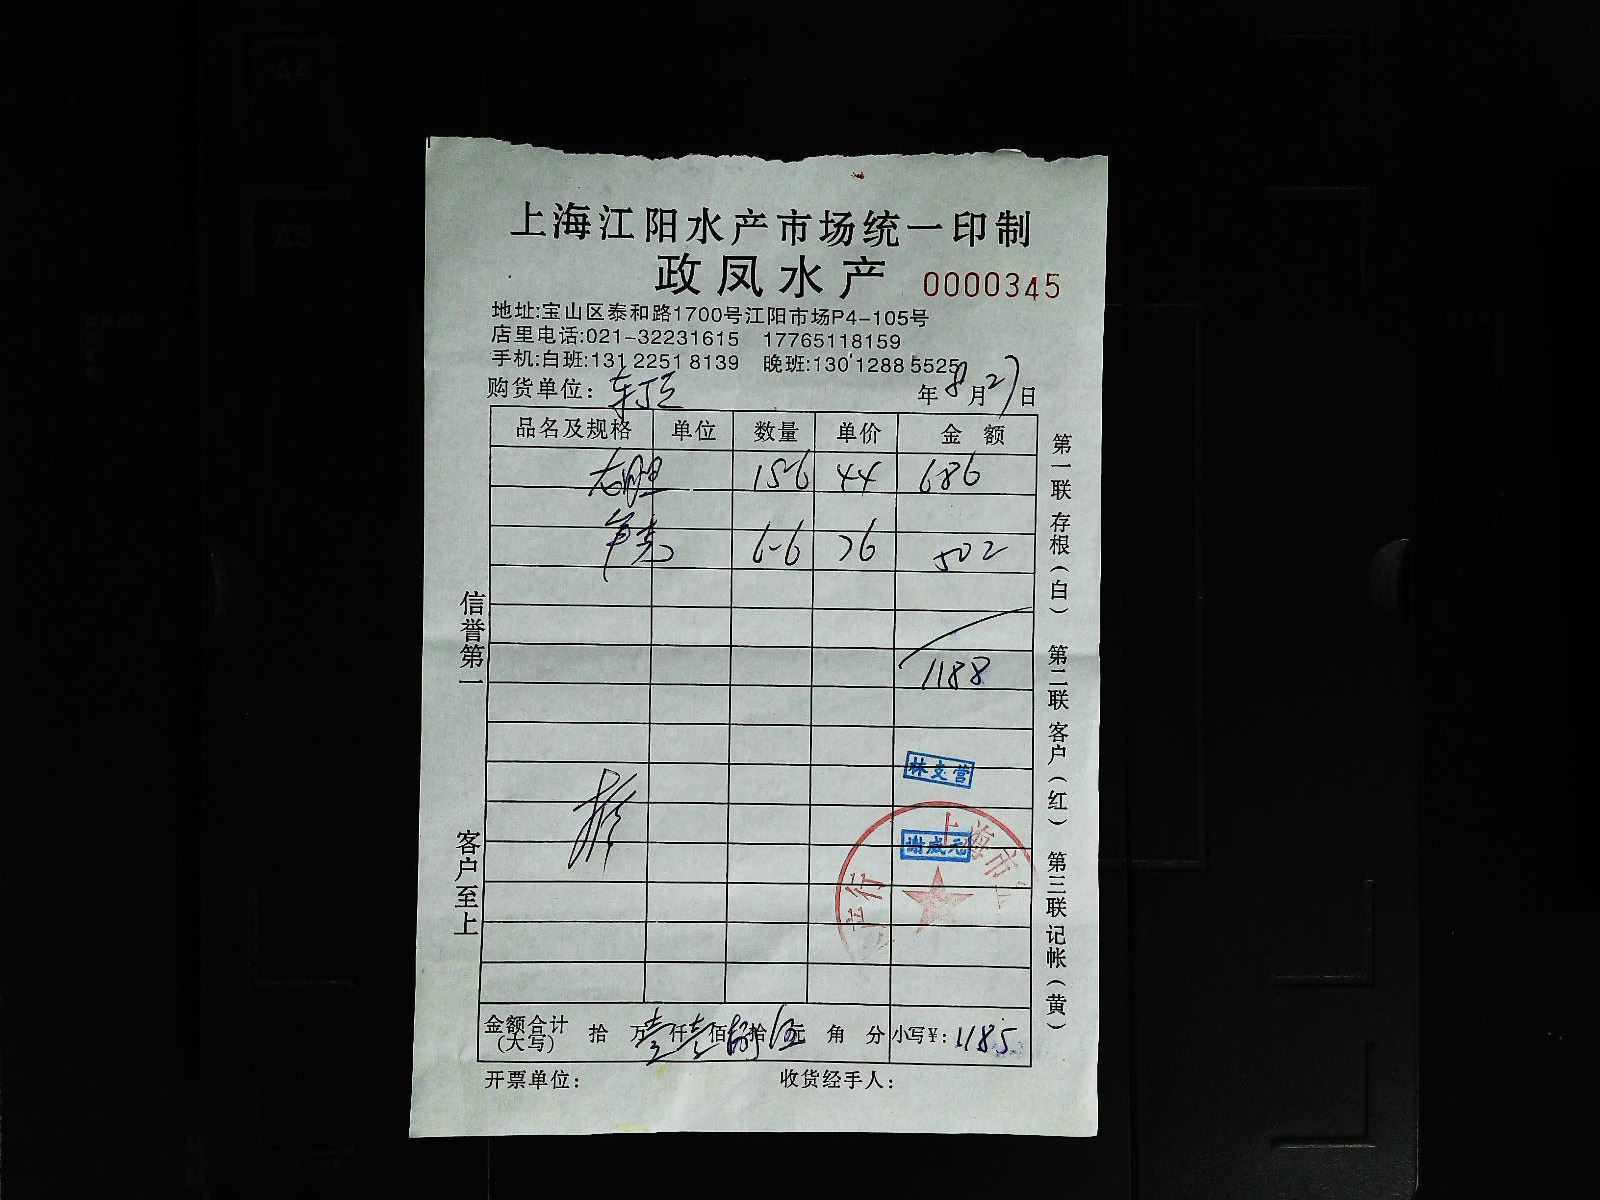 上海江阳水产市场统一印制
政凤水产 0000345
地址:宝山区泰和路1700号江阳市场P4-105号
店里电话:021-32231615 17765118159
手机:白班:131 2251 8139 晚班:130 1288 5525
购货单位: 年8月27日
品名及规格 单位 数量 单价 金额
15-6 44 686
6-6 76 502
1188
林交营
谢威元
上海市
行
金额合计(大写) 拾 万壹仟壹佰捌拾伍元 角 分 小写¥: 1185
开票单位: 收货经手人:
信誉第一
客户至上
第一联 存根(白) 第二联 客户(红) 第三联 记帐(黄)
A4
A5